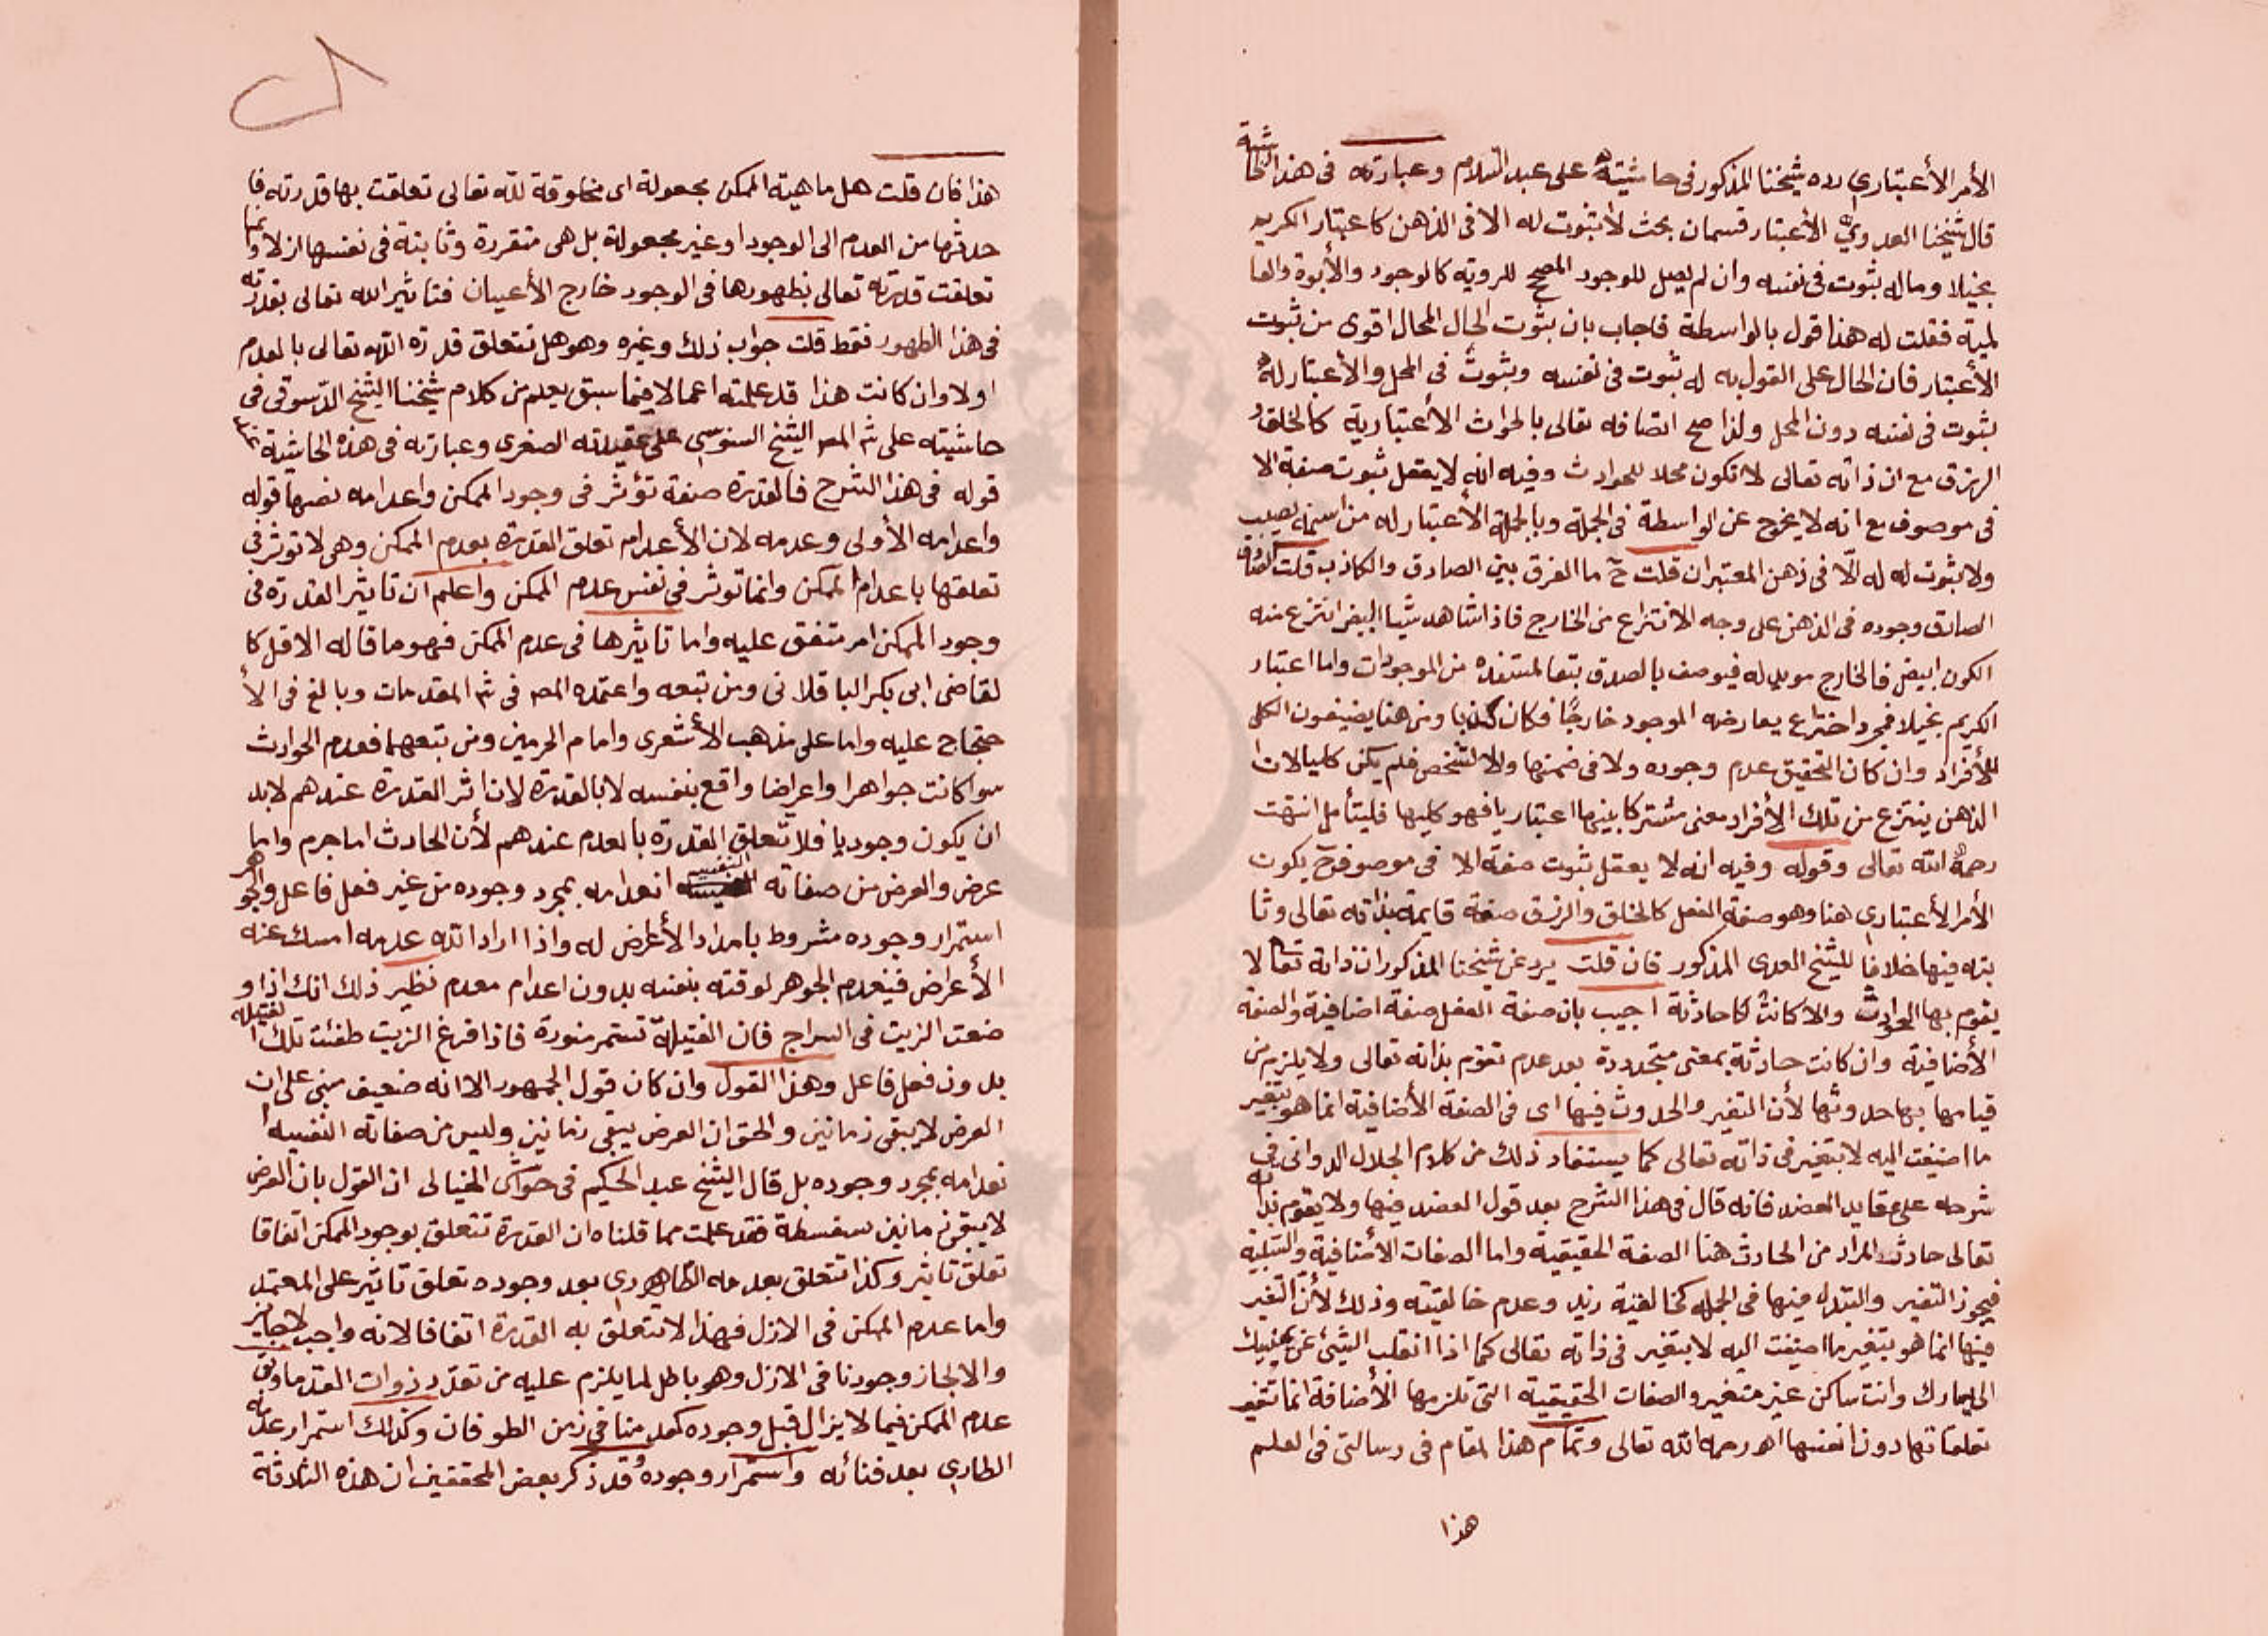 الأمر الأعتباري رده شيخنا المذكور في حاشيته على عبد السلام وعبارته في هذه الحاشية
قال شيخنا العدوي الأعتبار قسمان بحث لا ثبوت له الا في الذهن كاعتبار الكريم
بخيلا وماله ثبوت في نفسه وان لم يصل للوجود المصحح للروية كالوجود والأبوة والعا
لمية فقلت له هذا قول بالواسطة فاجاب بان ثبوت الحال المحال اقوى من ثبوت
الأعتبار فان الحال على القول به له ثبوت في نفسه وثبوت في المحل والأعتبار له
ثبوت في نفسه دون المحل ولذا صح اتصافه تعالى بالحوادث الأعتبارية كالخلق و
الرزق مع ان ذاته تعالى لا تكون محلا للحوادث وفيه انه لا يعقل ثبوت صفة الا
في موصوف مع انه لا يخرج عن الواسطة في الجملة وبالجملة الأعتبار له من اسمه نصيب
ولا ثبوت له له الا في ذهن المعتبر ان قلت ح ما الفرق بين الصادق والكاذب قلت
الصادق وجوده في الذهن على وجه الانتزاع من الخارج فاذا شاهد شيأ ابيض انتزع منه
الكون ابيض فالخارج مويد له فيوصف بالصدق تبعا لمستنده من الموجودات واما اعتبار
الكريم بخيلا فمجرد اختراع يعارضه الموجود خارجًا فكان كذبا ومن هنا يضيفون الكلي
للأفراد وان كان التحقيق عدم وجوده ولا في ضمنها والا لتشخص فلم يكن كليا الا ان
الذهن ينتزع من تلك الأفراد معنى مشتركا بينها اعتباريا فهو كليها فليتأمل انتهت
رحمه الله تعالى وقوله وفيه انه لا يعقل ثبوت صفة الا في موصوف ح يكون
الأمر الأعتباري هنا وهو صفة الفعل كالخلق والرزق صفة قايمة بذاته تعالى وثا
بته فيها خلافا للشيخ العدوي المذكور فان قلت يرد عن شيخنا المذكور ان ذاته تعالى لا
يقوم بها الحوادث والا كانت كا حادثة اجيب بان صفة الفعل صفة اضافية والصفة
الأضافية وان كانت حادثة بمعنى متجددة بعد عدم تقوم بذاته تعالى ولا يلزم من
قيامها بها حدوثها لأن التغير والحدوث فيها اى في الصفة الأضافية انما هو بتغير
ما اضيفت اليه لا بتغير في ذاته تعالى كما يستفاد ذلك من كلام الجلال الدواني في
شرحه على عقايد العضد فانه قال في هذا الشرح بعد قول العضد فيها ولا يقوم بذاته
تعالى حادث المراد من الحادث هنا الصفة الحقيقية واما الصفات الأضافية والسلبية
فيجوز التغير والتبدل فيها في الجملة كخالقية زيد وعدم خالقيته وذلك لأن التغير
فيها انما هو بتغير ما اضيفت اليه لا بتغير في ذاته تعالى كما اذا انقلب الشيئ عن يمينك
الى يسارك وانت ساكن غير متغير والصفات الحقيقية التي تلزمها الأضافة انما تتغير
تعلقاتها دون انفسها اهـ رحمه الله تعالى وتمام هذا المقام في رسالتي في العلم
هذا
هذا فان قلت هل ماهية الممكن مجعولة اى مخلوقة لله تعالى تعلقت بها قدرته فا
حدثها من العدم الى الوجود او غير مجعولة بل هى متقررة وثابتة في نفسها ازلا وانما
تعلقت قدرته تعالى بظهورها في الوجود خارج الأعيان فتاثير الله تعالى بقدرته
في هذا الظهور فقط قلت جواب ذلك وغيره وهو هل تتعلق قدرة الله تعالى بالعدم
اولا وان كانت هذا قد علمته اعما لا فيما سبق يعلم من كلام شيخنا الشيخ الدسوقي في
حاشيته على شر المص الشيخ السنوسي على عقيدته الصغرى وعبارته في هذه الحاشية عند
قوله في هذا الشرح فالقدرة صفة تؤثر في وجود الممكن واعدامه نصها قوله
واعدامه الأولى وعدمه لان الأعدام تعلق القدرة بعدم الممكن وهى لا توثر في
تعلقها باعدام الممكن وانما توثر في نفس عدم الممكن واعلم ان تاثير القدرة في
وجود الممكن امر متفق عليه واما تاثيرها في عدم الممكن فهو ما قاله الاقل كا
لقاضى ابى بكر الباقلانى ومن تبعه واعتمده المص في شر المقدمات وبالغ في الأ
حتجاج عليه واما على مذهب الأشعرى وامام الحرمين ومن تبعهما فعدم الحوادث
سوا كانت جواهر او اعراضا واقع بنفسه لا بالقدرة لان اثر القدرة عندهم لابد
ان يكون وجوديا فلا تتعلق القدرة بالعدم عندهم لأن الحادث اما جرم واما
عرض والعرض من صفاته النفسيه انعدامه بمجرد وجوده من غير فعل فاعل والجوهر
استمرار وجوده مشروط بامداد الأعراض له واذا اراد الله عدمه امسك عنه
الأعراض فينعدم الجوهر لوقته بنفسه بدون اعدام معدم نظير ذلك انك اذا و
ضعت الزيت في السراج فان الفتيلة تستمر منورة فاذا فرغ الزيت طفئت تلك الفتيلة
بدون فعل فاعل وهذا القول وان كان قول الجمهور الا انه ضعيف مبنى على ان
العرض لا يبقى زمانين والحق ان العرض يبقى زمانين وليس من صفاته النفسيه ا
نعدامه بمجرد وجوده بل قال الشيخ عبد الحكيم في حواشى الخيالى ان القول بان العرض
لا يبقى زمانين سفسطة فقد علمت مما قلناه ان القدرة تتعلق بوجود الممكن اتفاقا
تعلق تاثير وكذا تتعلق بعدمه الظاهرى بعد وجوده تعلق تاثير على المعتمد
واما عدم الممكن في الازل فهذا لا تتعلق به القدرة اتفاقا لانه واجب لا جايز
والا لجاز وجودنا في الازل وهو باطل لما يلزم عليه من تعدد ذوات القدما وبقى
عدم الممكن فيما لا يزال قبل وجوده كعدمنا في زمن الطوفان وكذلك استمرار عدمه
الطارى بعد فنائه واستمرار وجوده وقد ذكر بعض المحققين ان هذه الثلاثة